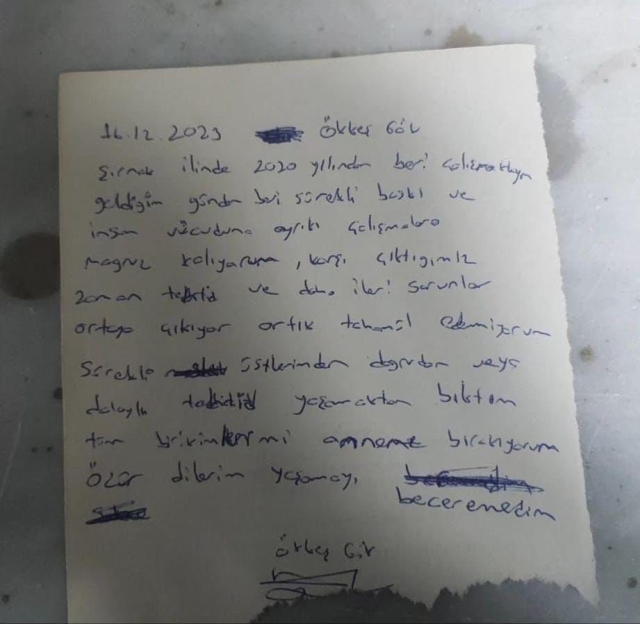 16.12.2023 Ökkeş Gör
Şırnak ilinde 2020 yılından beri çalışmaktayım
geldiğim günden beri sürekli baskı ve
insan vücuduna aykırı çalışmalara
magruz kalıyorum, karşı çıktığımız
zaman tehtid ve daha ileri sorunlar
ortaya çıkıyor artık tahamül edemiyorum
Sürekli üstlerimden doğrudan veya
dolaylı tehtid yaşamaktan bıktım
tüm birikimlerimi anneme bırakıyorum
Özür dilerim yaşamayı
beceremedim
Ökkeş